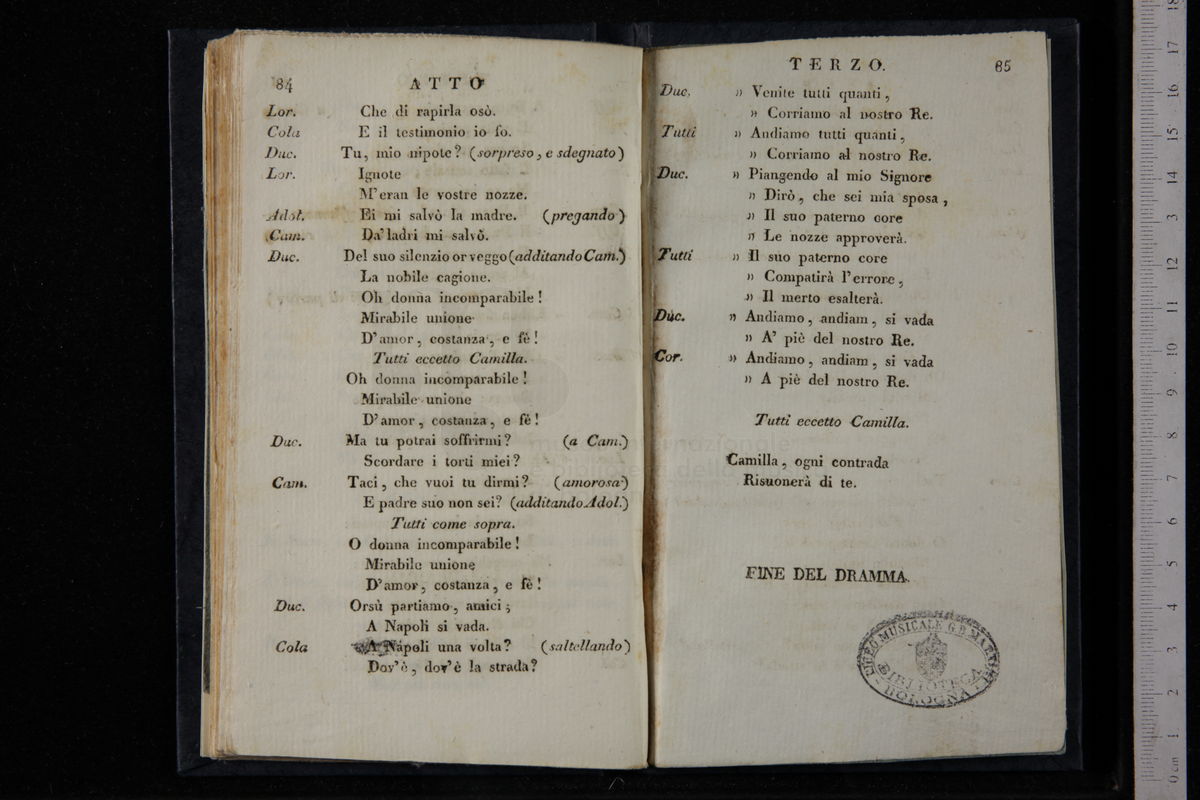 84 ATTO
Lor. Che di rapirla osò.
Cola E il testimonio io fo.
Duc. Tu, mio nipote? (sorpreso, e sdegnato)
Lor. Ignote
M'eran le vostre nozze.
Adol. Ei mi salvò la madre. (pregando)
Cam. Da' ladri mi salvò.
Duc. Del suo silenzio or veggo (additando Cam.)
La nobile cagione.
Oh donna incomparabile!
Mirabile unione
D'amor, costanza, e fè!
Tutti eccetto Camilla.
Oh donna incomparabile!
Mirabile unione
D'amor, costanza, e fè!
Duc. Ma tu potrai soffrirmi? (a Cam.)
Scordare i torti miei?
Cam. Taci, che vuoi tu dirmi? (amorosa)
E padre suo non sei? (additando Adol.)
Tutti come sopra.
O donna incomparabile!
Mirabile unione
D'amor, costanza, e fè!
Duc. Orsù partiamo, amici;
A Napoli si vada.
Cola A Napoli una volta? (saltellando)
Dov'è, dov'è la strada?
TERZO. 85
Duc. » Venite tutti quanti,
» Corriamo al nostro Re.
Tutti » Andiamo tutti quanti,
» Corriamo al nostro Re.
Duc. » Piangendo al mio Signore
» Dirò, che sei mia sposa,
» Il suo paterno core
» Le nozze approverà.
Tutti » Il suo paterno core
» Compatirà l'errore,
» Il merto esalterà.
Duc. » Andiamo, andiam, si vada
» A' piè del nostro Re.
Cor. » Andiamo, andiam, si vada
» A piè del nostro Re.
Tutti eccetto Camilla.
Camilla, ogni contrada
Risuonerà di te.
FINE DEL DRAMMA.
LICEO MUSICALE G. B. MARTINI
BIBLIOTECA
BOLOGNA